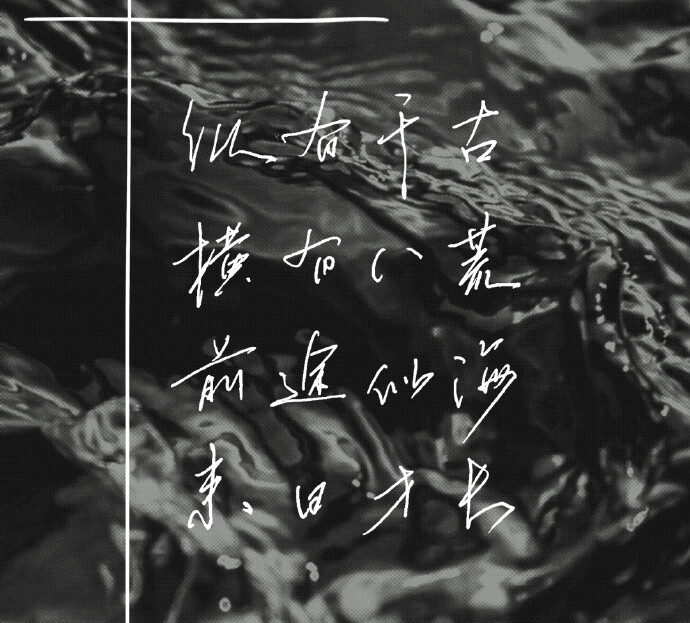 纵有千古
横有八荒
前途似海
来日才长